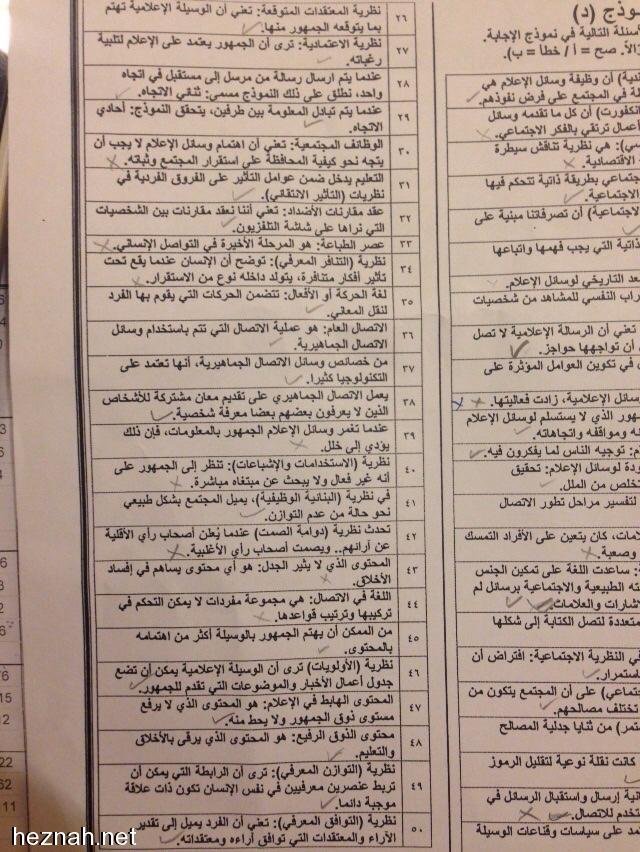 نموذج (د)
الأسئلة التالية في نموذج الإجابة.
صح = أ / خطأ = ب).
) أن وظيفة وسائل الإعلام هي
في المجتمع على فرض نفوذهم.
أن كل ما تقدمه وسائل
أعمال ترتقي بالفكر الاجتماعي.
هي نظرية تناقش سيطرة
الاقتصادية.
بطريقة ذاتية تتحكم فيها
الاجتماعية.
الاجتماعية) أن تصرفاتنا مبنية على
ذاتية التي يجب فهمها واتباعها
التاريخي لوسائل الإعلام.
النفسي للمشاهد من شخصيات
تعني أن الرسالة الإعلامية لا تصل
أن تواجهها حواجز.
في تكوين العوامل المؤثرة على
وسائل الإعلامية، زادت فعاليتها.
الذي لا يستسلم لوسائل الإعلام
ومواقفه واتجاهاته.
توجيه الناس لما يفكرون فيه.
لوسائل الإعلام: تحقيق
التخلص من الملل.
لتفسير مراحل تطور الاتصال
كان يتعين على الأفراد التمسك
وصعبة.
ساعدت اللغة على تمكين الجنس
الطبيعية والاجتماعية برسائل لم
الإشارات والعلامات.
متعددة لتصل الكتابة إلى شكلها
في النظرية الاجتماعية: افتراض أن
استمرار.
على أن المجتمع يتكون من
تختلف مصالحهم.
من ثنايا جدلية المصالح
كانت نقلة نوعية لتقليل الرموز
إرسال واستقبال الرسائل في
للاتصال.
على سياسات وقناعات الوسيلة
٢٦ نظرية المعتقدات المتوقعة: تعني أن الوسيلة الإعلامية تهتم
بما يتوقعه الجمهور منها.
٢٧ نظرية الاعتمادية: ترى أن الجمهور يعتمد على الإعلام لتلبية
رغباته.
٢٨ عندما يتم ارسال رسالة من مرسل إلى مستقبل في اتجاه
واحد، نطلق على ذلك النموذج مسمى: ثنائي الاتجاه.
٢٩ عندما يتم تبادل المعلومة بين طرفين، يتحقق النموذج: أحادي
الاتجاه.
٣٠ الوظائف المجتمعية: تعني أن اهتمام وسائل الإعلام لا يجب أن
يتجه نحو كيفية المحافظة على استقرار المجتمع وثباته.
٣١ التعليم يدخل ضمن عوامل التأثير على الفروق الفردية في
نظريات (التأثير الانتقائي).
٣٢ عقد مقارنات الأضداد: تعني أننا نعقد مقارنات بين الشخصيات
التي نراها على شاشة التلفزيون.
٣٣ عصر الطباعة: هو المرحلة الأخيرة في التواصل الإنساني.
٣٤ نظرية (التنافر المعرفي): توضح أن الإنسان عندما يقع تحت
تأثير أفكار متنافرة، يتولد داخله نوع من الاستقرار.
٣٥ لغة الحركة أو الأفعال: تتضمن الحركات التي يقوم بها الفرد
لنقل المعاني.
٣٦ الاتصال العام: هو عملية الاتصال التي تتم باستخدام وسائل
الاتصال الجماهيرية.
٣٧ من خصائص وسائل الاتصال الجماهيرية، أنها تعتمد على
التكنولوجيا كثيرا.
٣٨ يعمل الاتصال الجماهيري على تقديم معان مشتركة للأشخاص
الذين لا يعرفون بعضهم بعضا معرفة شخصية.
٣٩ عندما تغمر وسائل الإعلام الجمهور بالمعلومات، فإن ذلك
يؤدي إلى خلل.
٤٠ نظرية (الاستخدامات والإشباعات): تنظر إلى الجمهور على
أنه غير فعال ولا يبحث عن مبتغاه مباشرة.
٤١ في نظرية (البنائية الوظيفية)، يميل المجتمع بشكل طبيعي
نحو حالة من عدم التوازن.
٤٢ تحدث نظرية (دوامة الصمت) عندما يُعلن أصحاب رأي الأقلية
عن آرائهم.. ويصمت أصحاب رأي الأغلبية.
٤٣ المحتوى الذي لا يثير الجدل: هو أي محتوى يساهم في إفساد
الأخلاق.
٤٤ اللغة في الاتصال: هي مجموعة مفردات لا يمكن التحكم في
تركيبها وترتيب قواعدها.
٤٥ من الممكن أن يهتم الجمهور بالوسيلة أكثر من اهتمامه
بالمحتوى.
٤٦ نظرية (الأولويات) ترى أن الوسيلة الإعلامية يمكن أن تضع
جدول أعمال الأخبار والموضوعات التي تقدم للجمهور.
٤٧ المحتوى الهابط في الإعلام: هو المحتوى الذي لا يرفع
مستوى ذوق الجمهور ولا يحط منه.
٤٨ محتوى الذوق الرفيع: هو المحتوى الذي يرقى بالأخلاق
والتعليم.
٤٩ نظرية (التوازن المعرفي): ترى أن الرابطة التي يمكن أن
تربط عنصرين معرفيين في نفس الإنسان تكون ذات علاقة
موجبة دائما.
٥٠ نظرية (التوافق المعرفي): تعني أن الفرد يميل إلى تقدير
الآراء والمعتقدات التي توافق أراءه ومعتقداته.
22
62
11
heznah.net